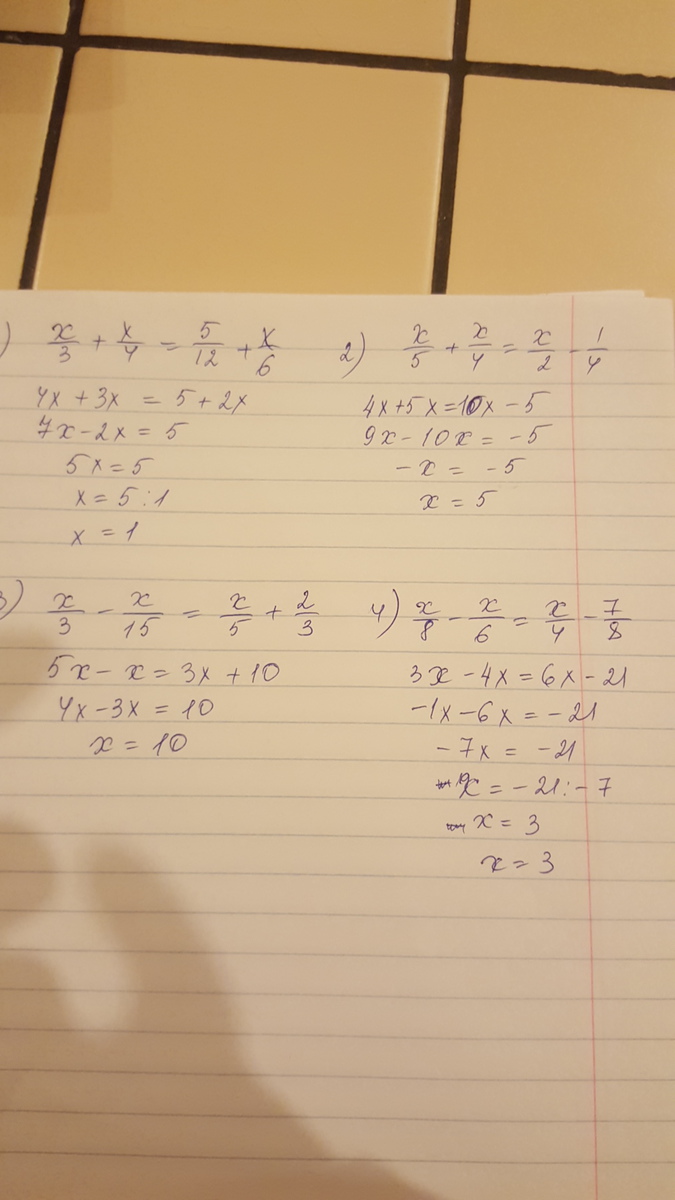 ) x/3 + x/4 = 5/12 + x/6
4x + 3x = 5 + 2x
7x - 2x = 5
5x = 5
x = 5 : 1
x = 1
2) x/5 + x/4 = x/2 - 1/4
4x + 5x = 10x - 5
9x - 10x = -5
- x = -5
x = 5
3) x/3 - x/15 = x/5 + 2/3
5x - x = 3x + 10
4x - 3x = 10
x = 10
4) x/8 - x/6 = x/4 - 7/8
3x - 4x = 6x - 21
-1x - 6x = -21
- 7x = -21
x = -21 : -7
x = 3
x = 3